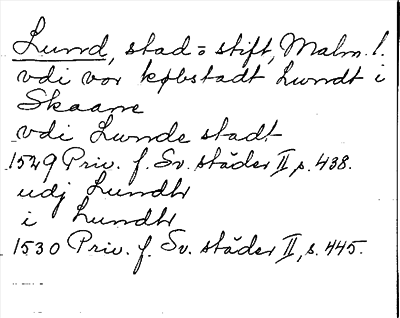 Lund, stad o stift, Malm. l.
vdi vor købstadt Lundt i
Skaane
vdi Lunde stadt
1529 Priv. f. Sv. städer II, s. 438.
udj Lundtt
i Lundtt
1530 Priv. f. Sv. städer II, s. 445.